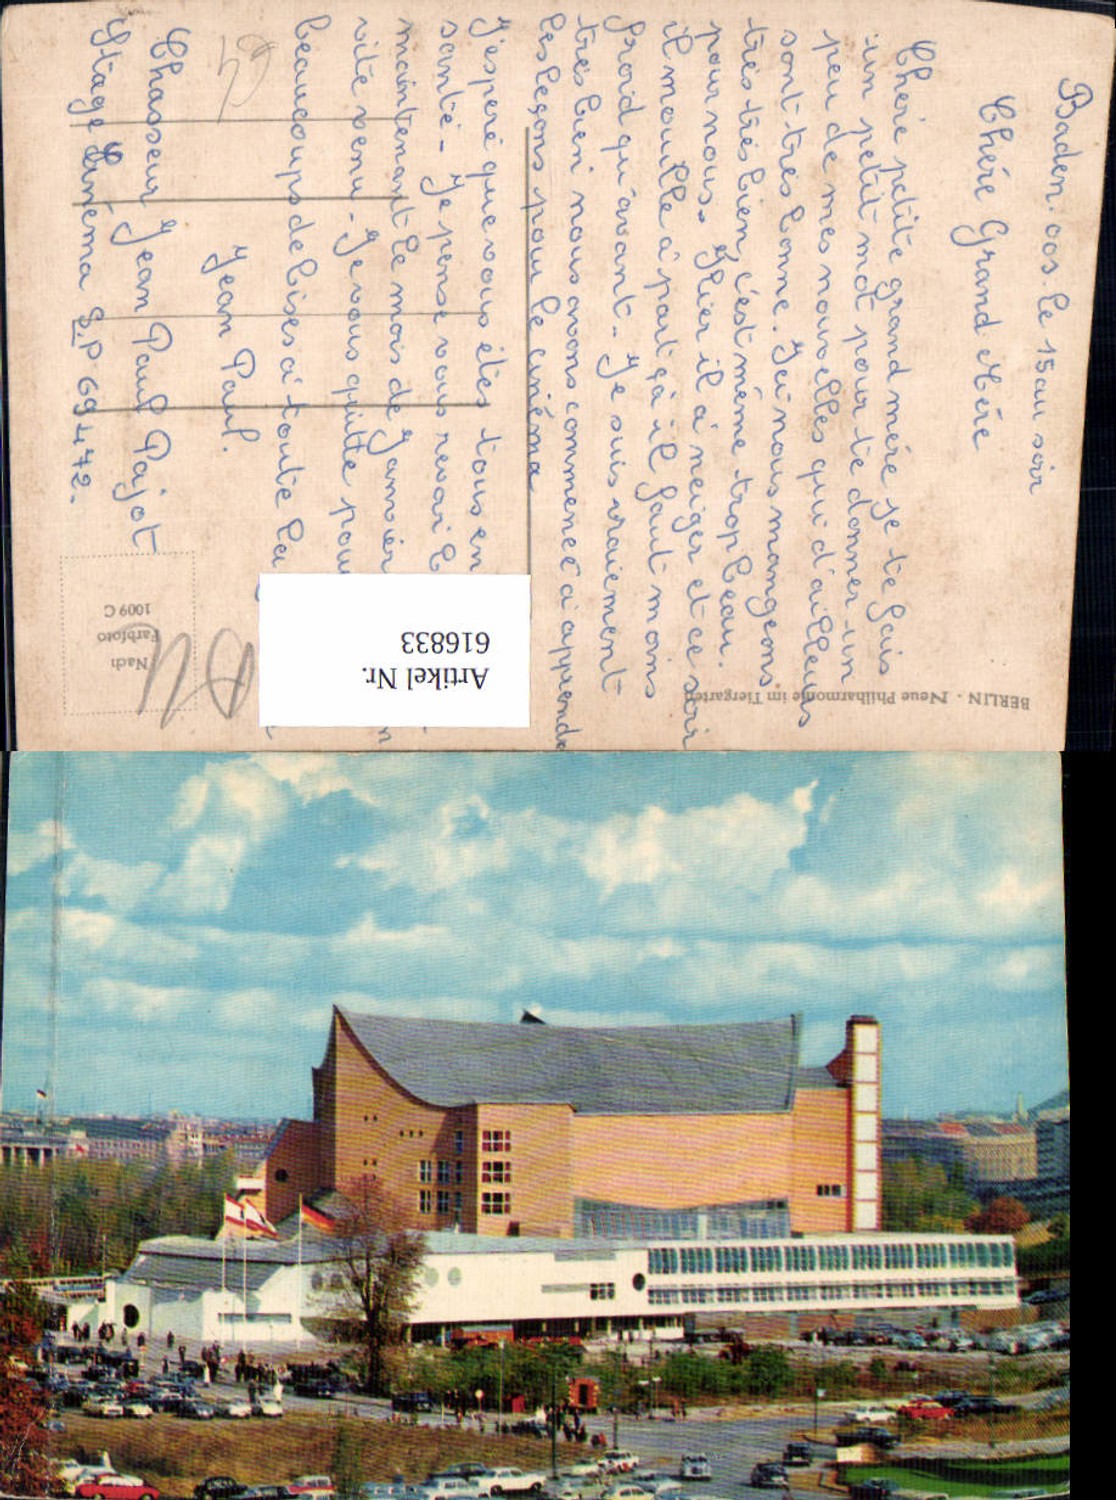 Baden. oos. Le 15 au soir
Chére Grand. Mére
Chére petite grand mére je te fais
un petit mot pour te donner un
peu de mes nouvelles qui d'ailleurs
sont très bonne. Ici nous mangeons
très très bien, c'est même trop beau.
pour nous. Hier il à neiger et ce soir
il mouille à part çà il faut moins
froid qu'avant. Je suis vraiement
très bien nous avons commencé à apprendre
les leçons pour le cinéma
J'espere que vous étes tous en
santé. Je pense vous revoir
maintenant le mois de Janvier
vite venu. Je vous quitte pour
beaucoups de bises à toute la
Jean Paul.
Chasseur Jean Paul Pajot
Stage Cinéma S.P 69472.
BERLIN · Neue Philharmonie im Tiergarten
Nach
Farbfoto
1009 C
Artikel Nr.
616833